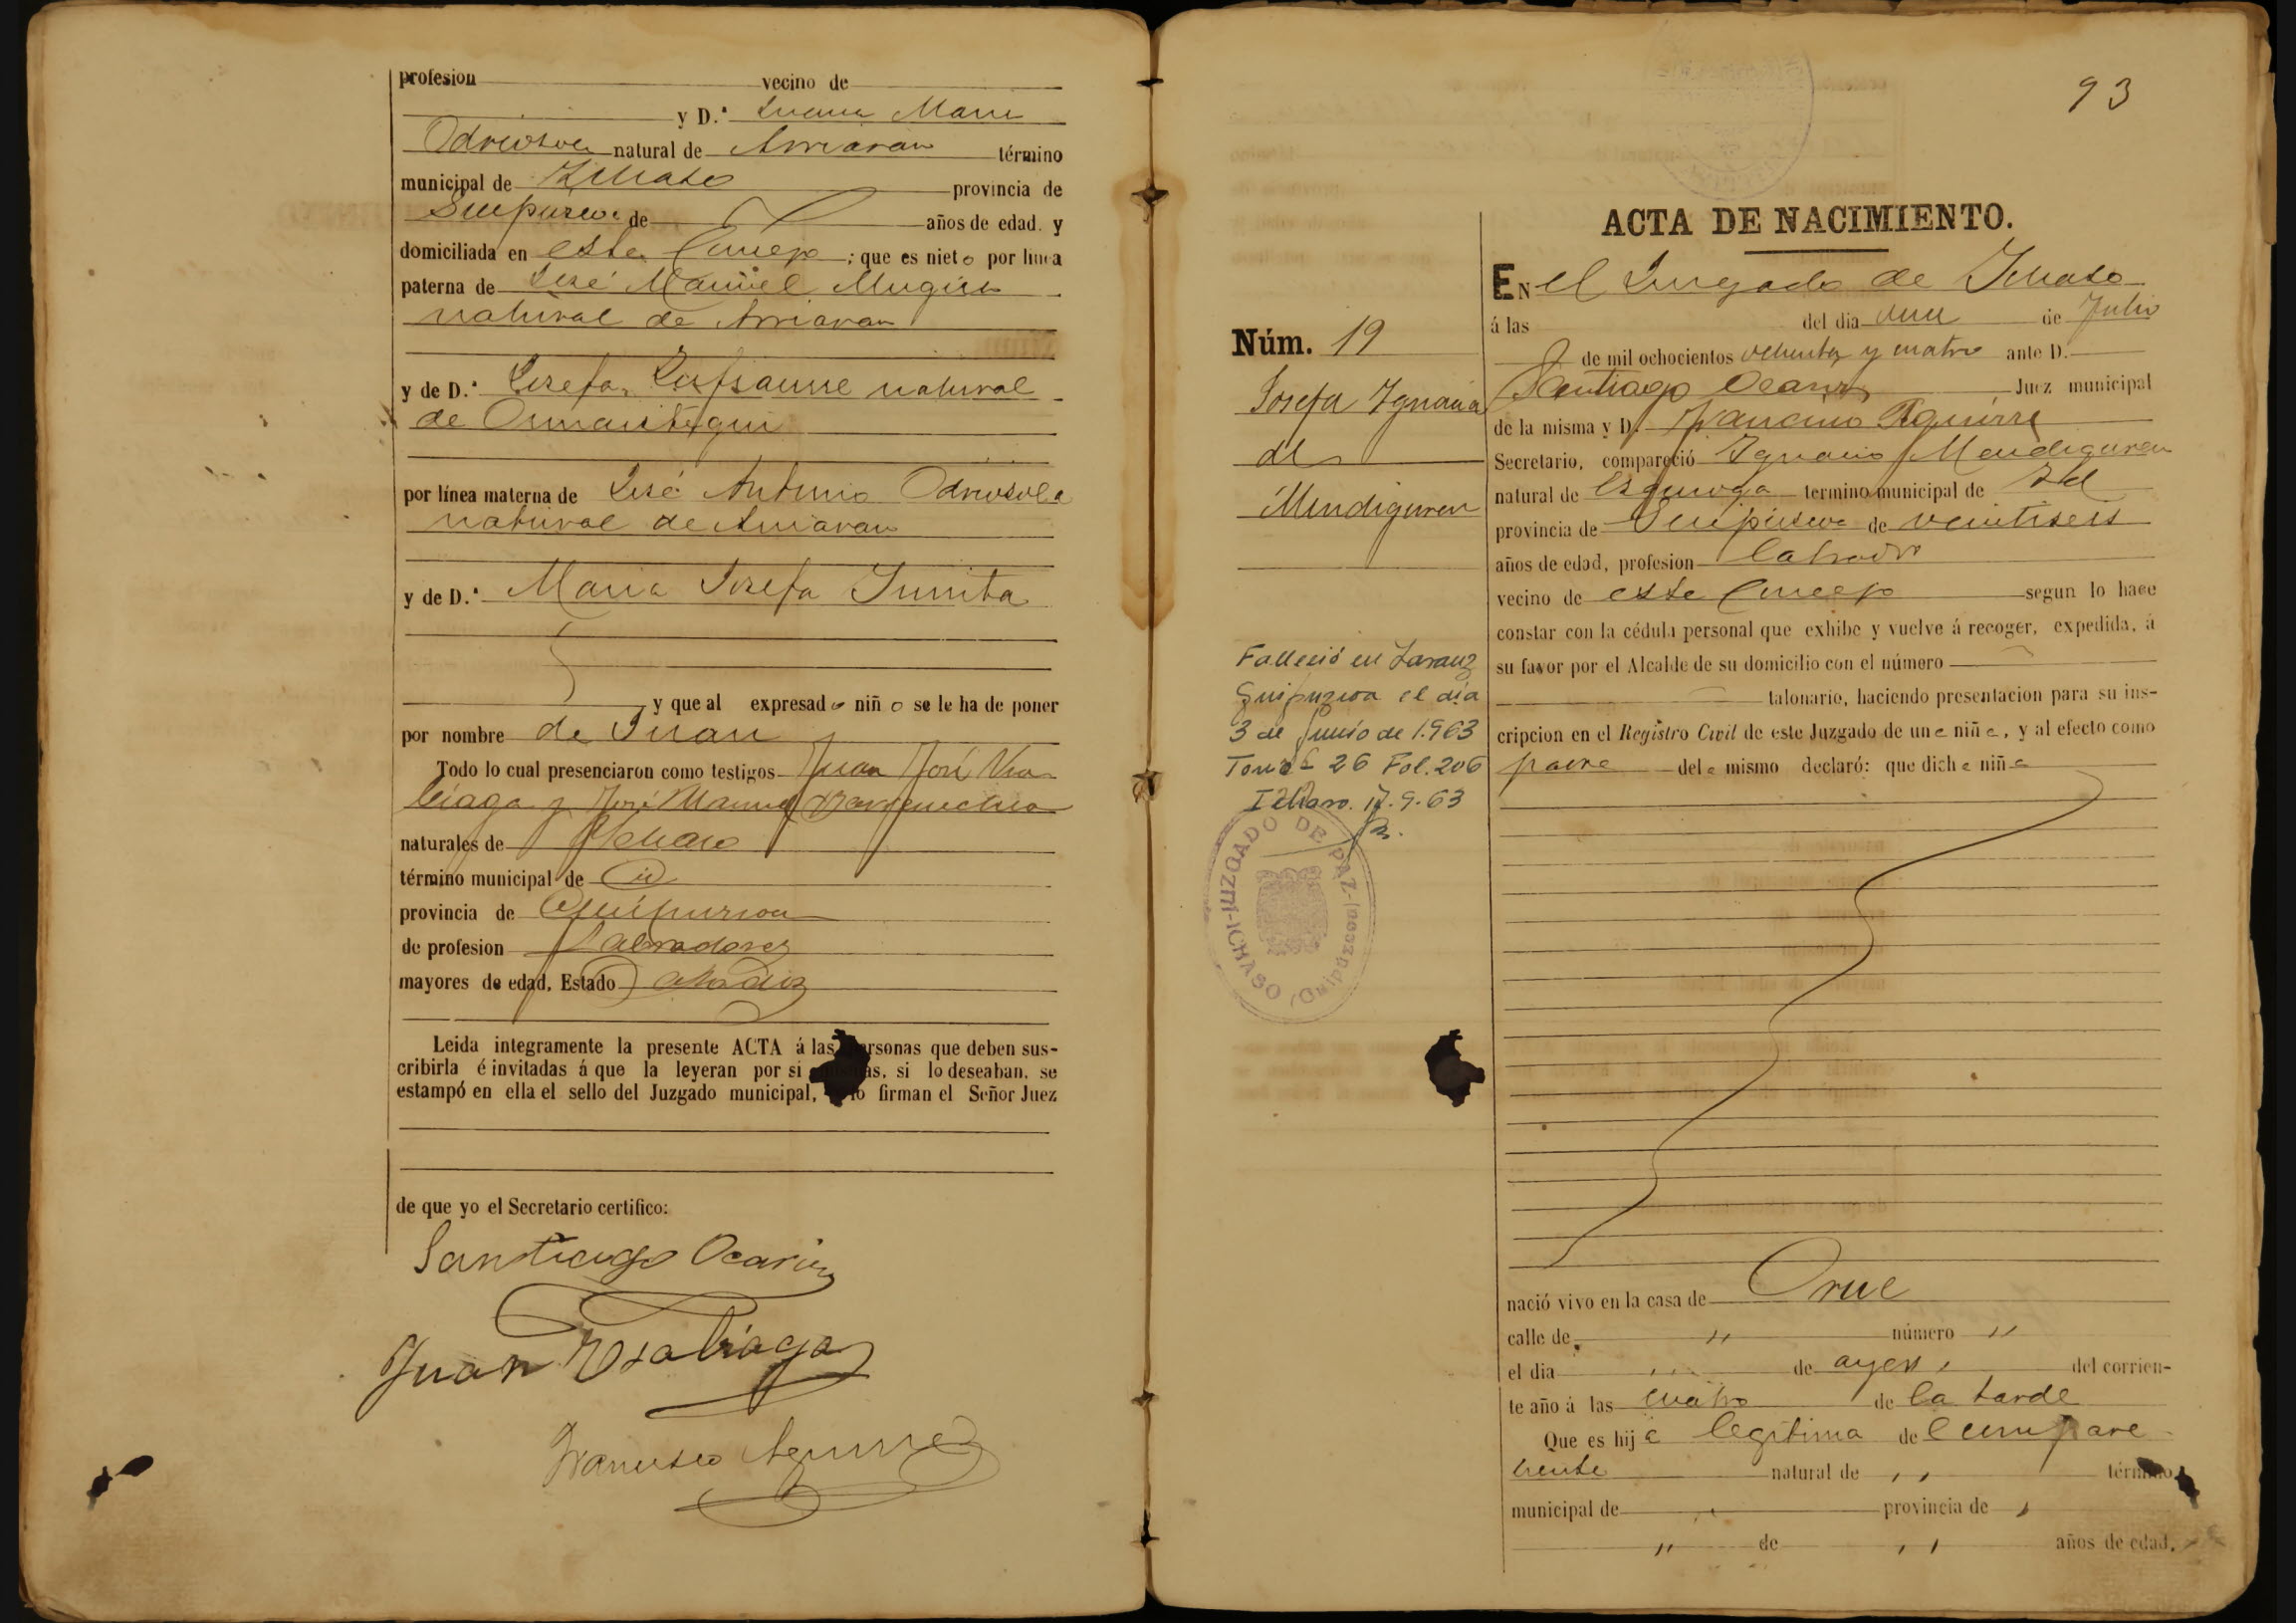 profesion vecino de
y D.ª Juana Maria
Odriosola natural de Arriaran término
municipal de Ichaso provincia de
Guipuzcoa de años de edad. y
domiciliada en este Concejo ; que es nieto por línea
paterna de José Manuel Mugica
natural de Arriaran
y de D.ª Josefa natural
de Ormaiztegui
por línea materna de José Antonio Odriosola
natural de Arriaran
y de D.ª Maria Josefa
y que al expresado niño se le ha de poner
por nombre de Juan
Todo lo cual presenciaron como testigos Juan José Usa-
biaga y José Manuel
naturales de Ichaso
término municipal de id
provincia de Guipuzcoa
de profesion Labradores
mayores de edad, Estado casados
Leida integramente la presente ACTA á las personas que deben sus-
cribirla é invitadas á que la leyeran por si mismas, si lo deseaban, se
estampó en ella el sello del Juzgado municipal, y lo firman el Señor Juez
de que yo el Secretario certifico:
Santiago Ocariz
Juan Usabiaga
Francisco Aguirre
93
ACTA DE NACIMIENTO.
Núm. 19
Josefa Ignacia
de
Mendiguren
Falleció en Zarauz
Guipuzcoa el día
3 de Junio de 1.963
Tomo 26 Fol. 206
Ichaso. 17.9.63
JUZGADO DE PAZ - ICHASO (Guipúzcoa)
EN el Juzgado de Ichaso
á las del dia once de Julio
de mil ochocientos ochenta y cuatro ante D.
Santiago Ocariz Juez municipal
de la misma y D. Francisco Aguirre
Secretario, compareció Ignacio Mendiguren
natural de Ezquioga termino municipal de Id
provincia de Guipuzcoa de veintiseis
años de edad, profesion labrador
vecino de este Concejo segun lo hace
constar con la cédula personal que exhibe y vuelve á recoger, expedida, á
su favor por el Alcalde de su domicilio con el número
talonario, haciendo presentacion para su ins-
cripcion en el Registro Civil de este Juzgado de una niña, y al efecto como
padre dela mismo declaró: que dicha niña
nació vivo en la casa de Orue
calle de " número "
el dia " de ayer del corrien-
te año á las cuatro de la tarde
Que es hija legitima del compare
ciente natural de " término
municipal de " provincia de "
" de " años de edad.